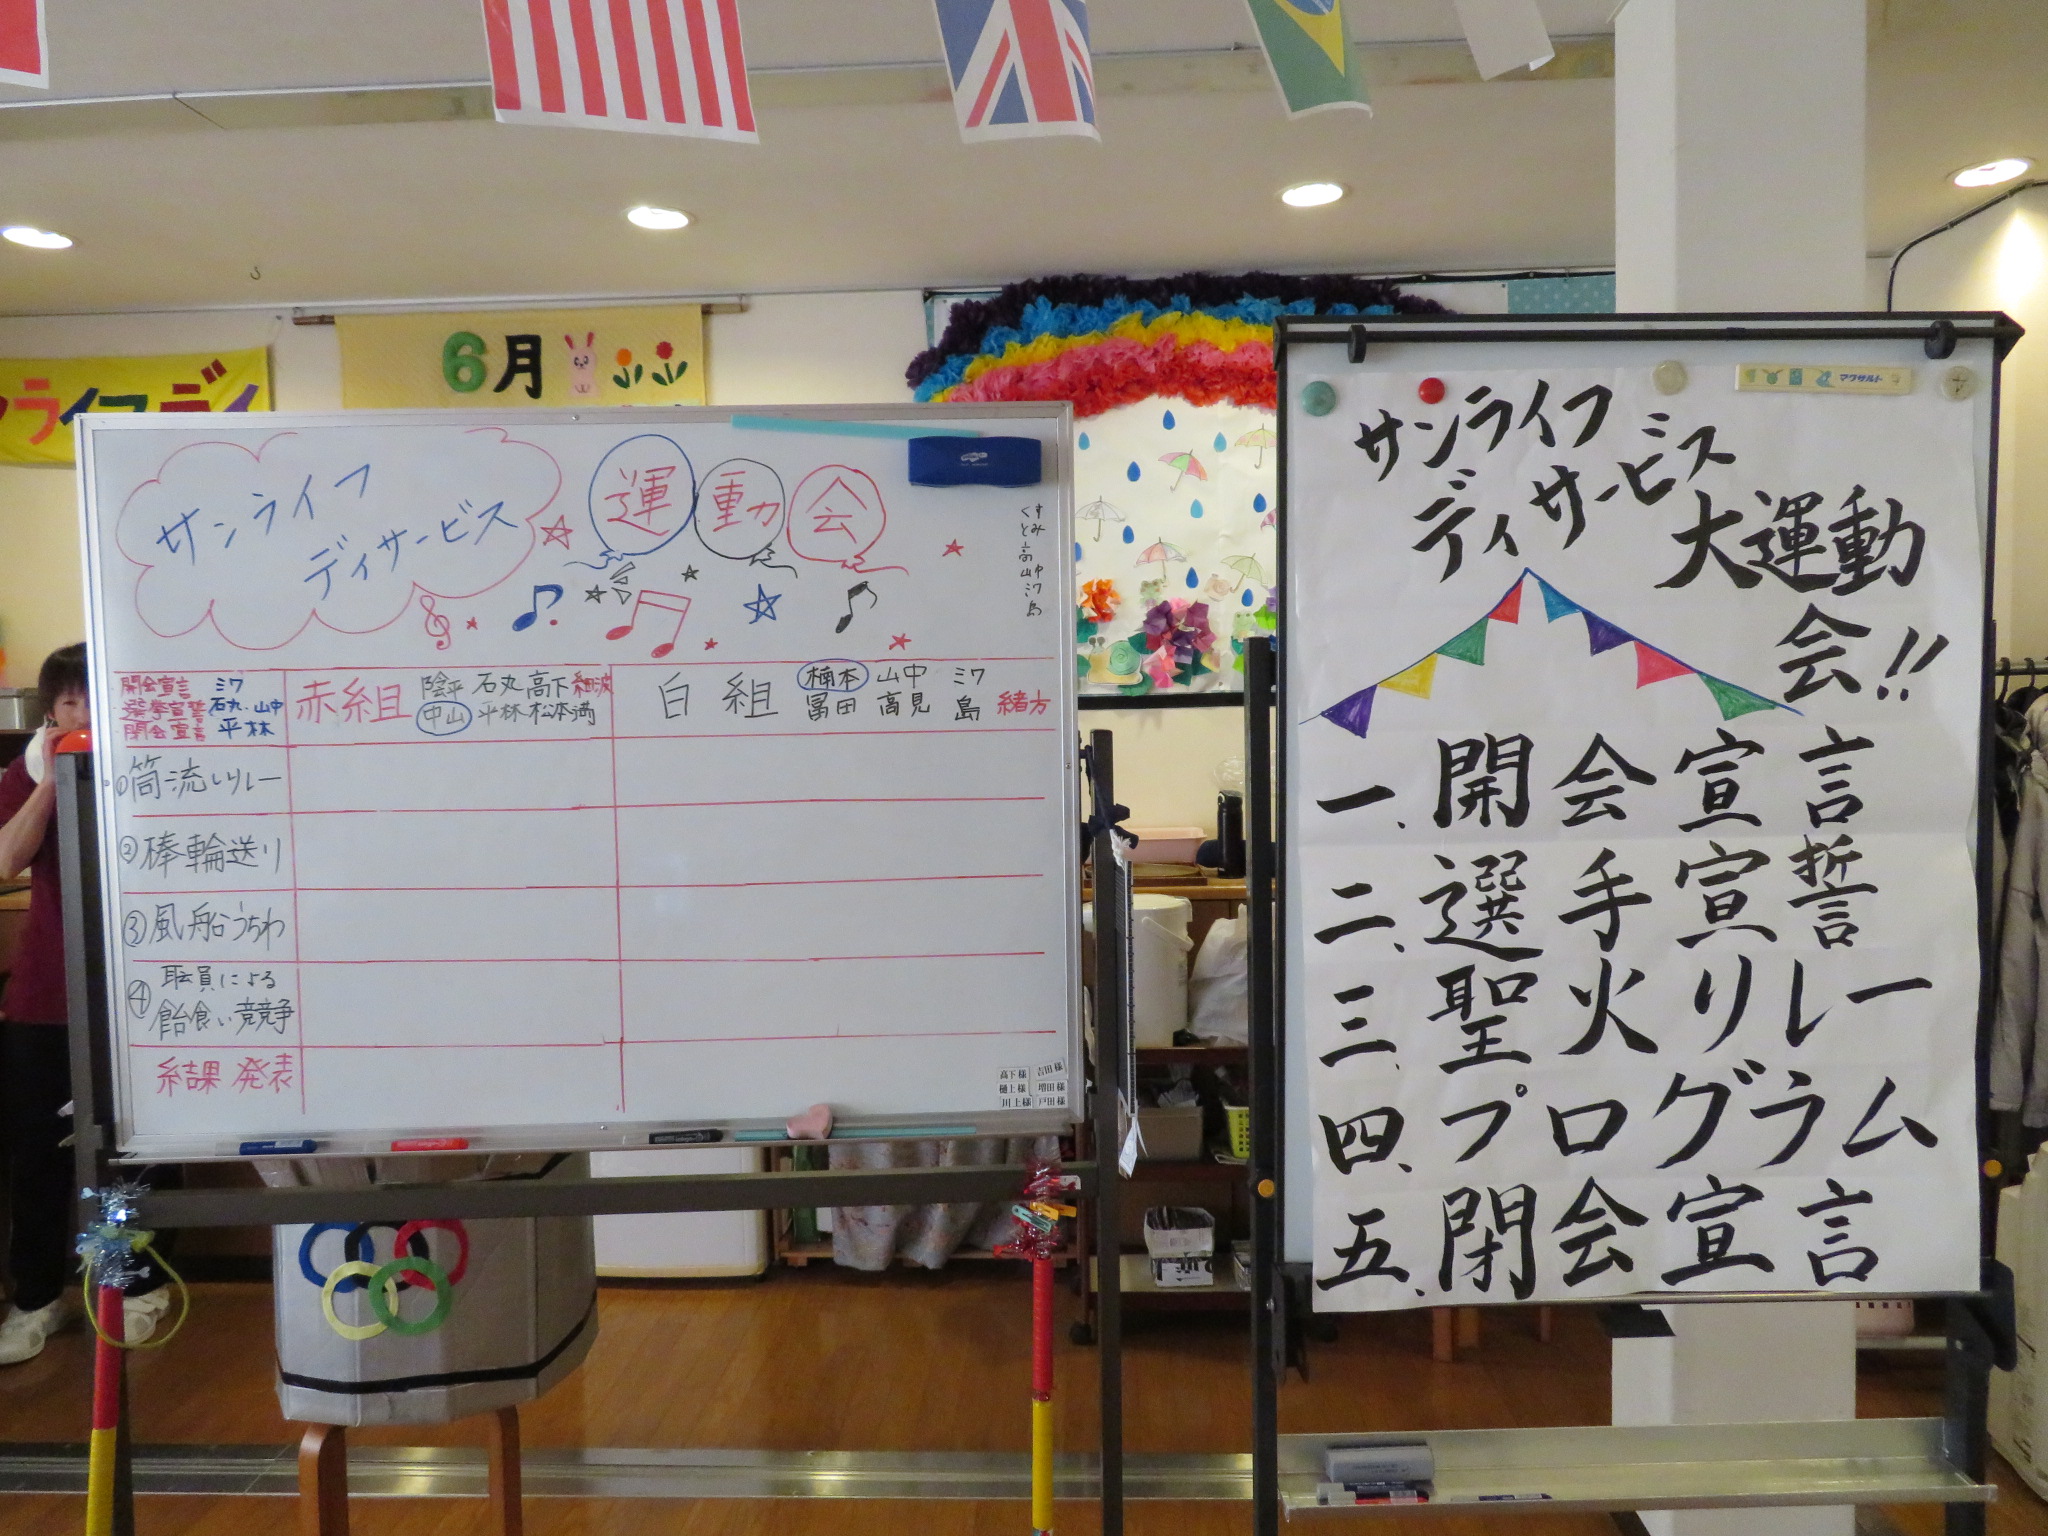 6月
サンライフ
ディサービス
運動会
開会宣言 ミワ
選挙宣誓 石丸・山中
閉会宣言 平林
赤組 陰平 石丸 高下
中山 平林 松本 満
白組 楠本 山中 ミワ
冨田 高見 島 緒方
①筒流しリレー
②棒輪送り
③風船うちわ
④職員による
飴食い競争
結果発表
高下様 吉田様
樋上様 増田様
川上様 戸田様
マグサルト
サンライフ
ディサービス
大運動
会!!
一、開会宣言
二、選手宣誓
三、聖火リレー
四、プログラム
五、閉会宣言